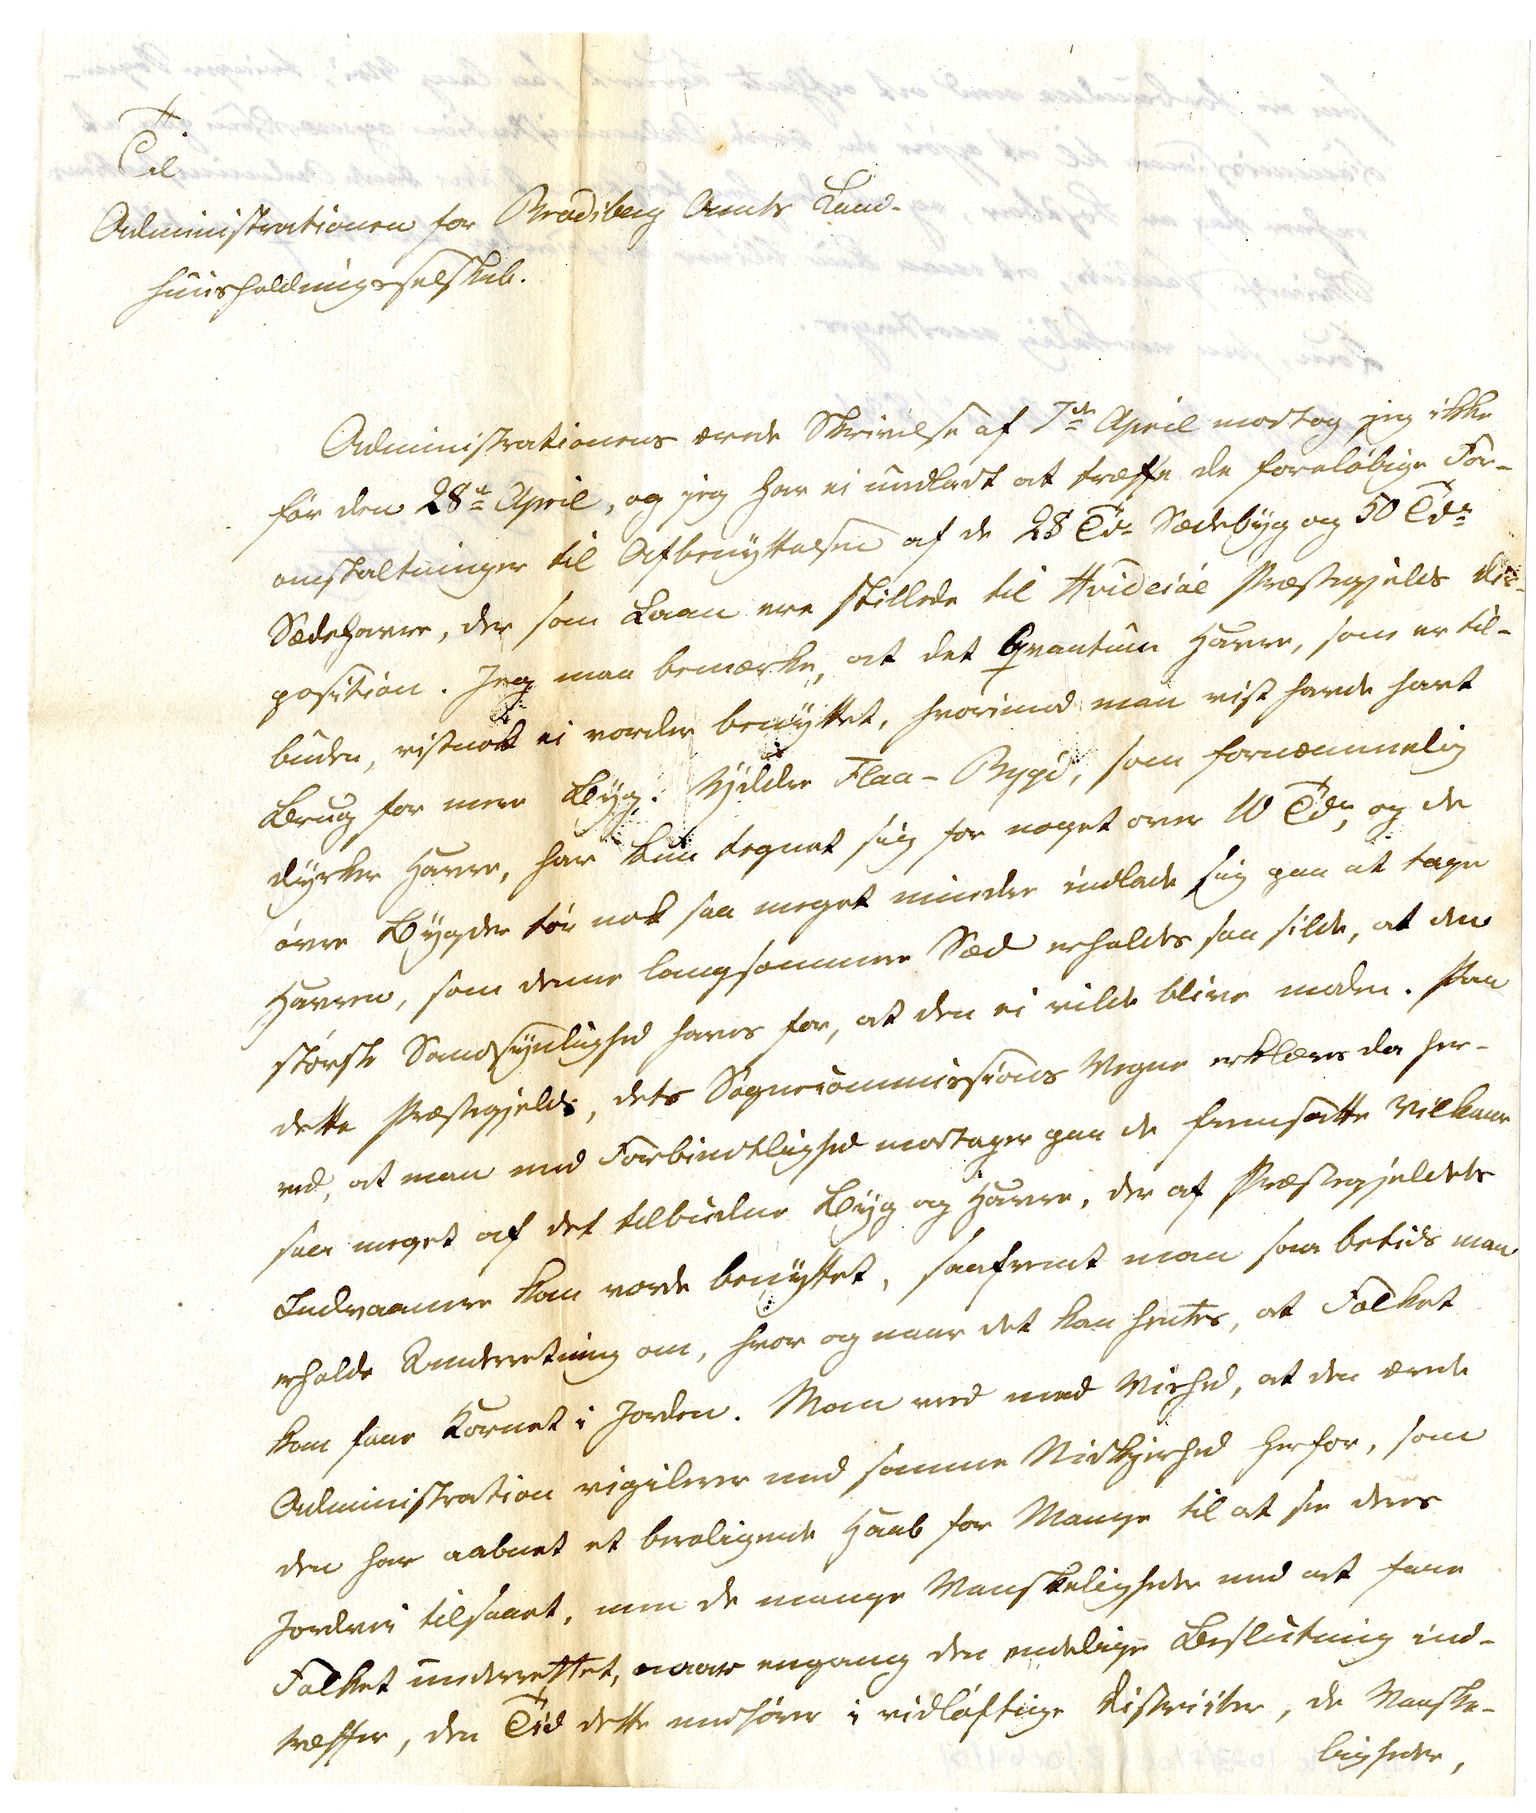 Til
Administrationen for Bradsberg Amts Land-
huusholdningsselskab.
Administrationens ærede Skrivelse af 7de April modtog jeg ikke
før den 28de April, og jeg har ei undladt at træffe de foreløbige For-
anstaltninger til Afbenyttelsen af de 28 Tdr Sædebyg og 50 Tdr
Sædehavre, der som Laan ere stillede til Hvideseie Præstegjelds dis-
position. Jeg maa bemærke, at det Qvantum Havre, som er til-
buden, vistnok ei vorder benyttet, hvorimod man vist havde havt
Brug for mere Byg. Flaa-Bygd, som fornæmmelig
dyrker Havre, har kun tegnet sig for noget over 10 Tdr, og de
øvre Bygder tør nok saa meget mindre indlade sig paa at tage
Havren, som denne langsommere Sæd erholdes saa silde, at den
største Sandsynlighed haves for, at den ei vilde blive moden. Paa
dette Præstegjelds, dets Sognecommissions Vegne erklæres da her-
ved, at man med Forbindtlighed modtager paa de fremsatte Vilkaar
saa meget af det tilbudne Byg og Havre, der af Præstegjeldets
Indvaanere kan vorde benyttet, saafremt man saa betids maa
erholde Underretning om, hvor og naar det kan hentes, at Folket
kan faae Kornet i Jorden. Man veed med Vished, at den ærede
Administration vigilerer med samme Nidkjerhed herfor, som
den har aabnet et beroligende Haab for Mange til at see deres
Jordvei tilsaaet, men de mange Vanskeligheder med at faae
Folket underrettet, naar engang den endelige Beslutning ind-
træffer, den Tid dette medfører i vidløftige Districter, de Vanske-
ligheder,